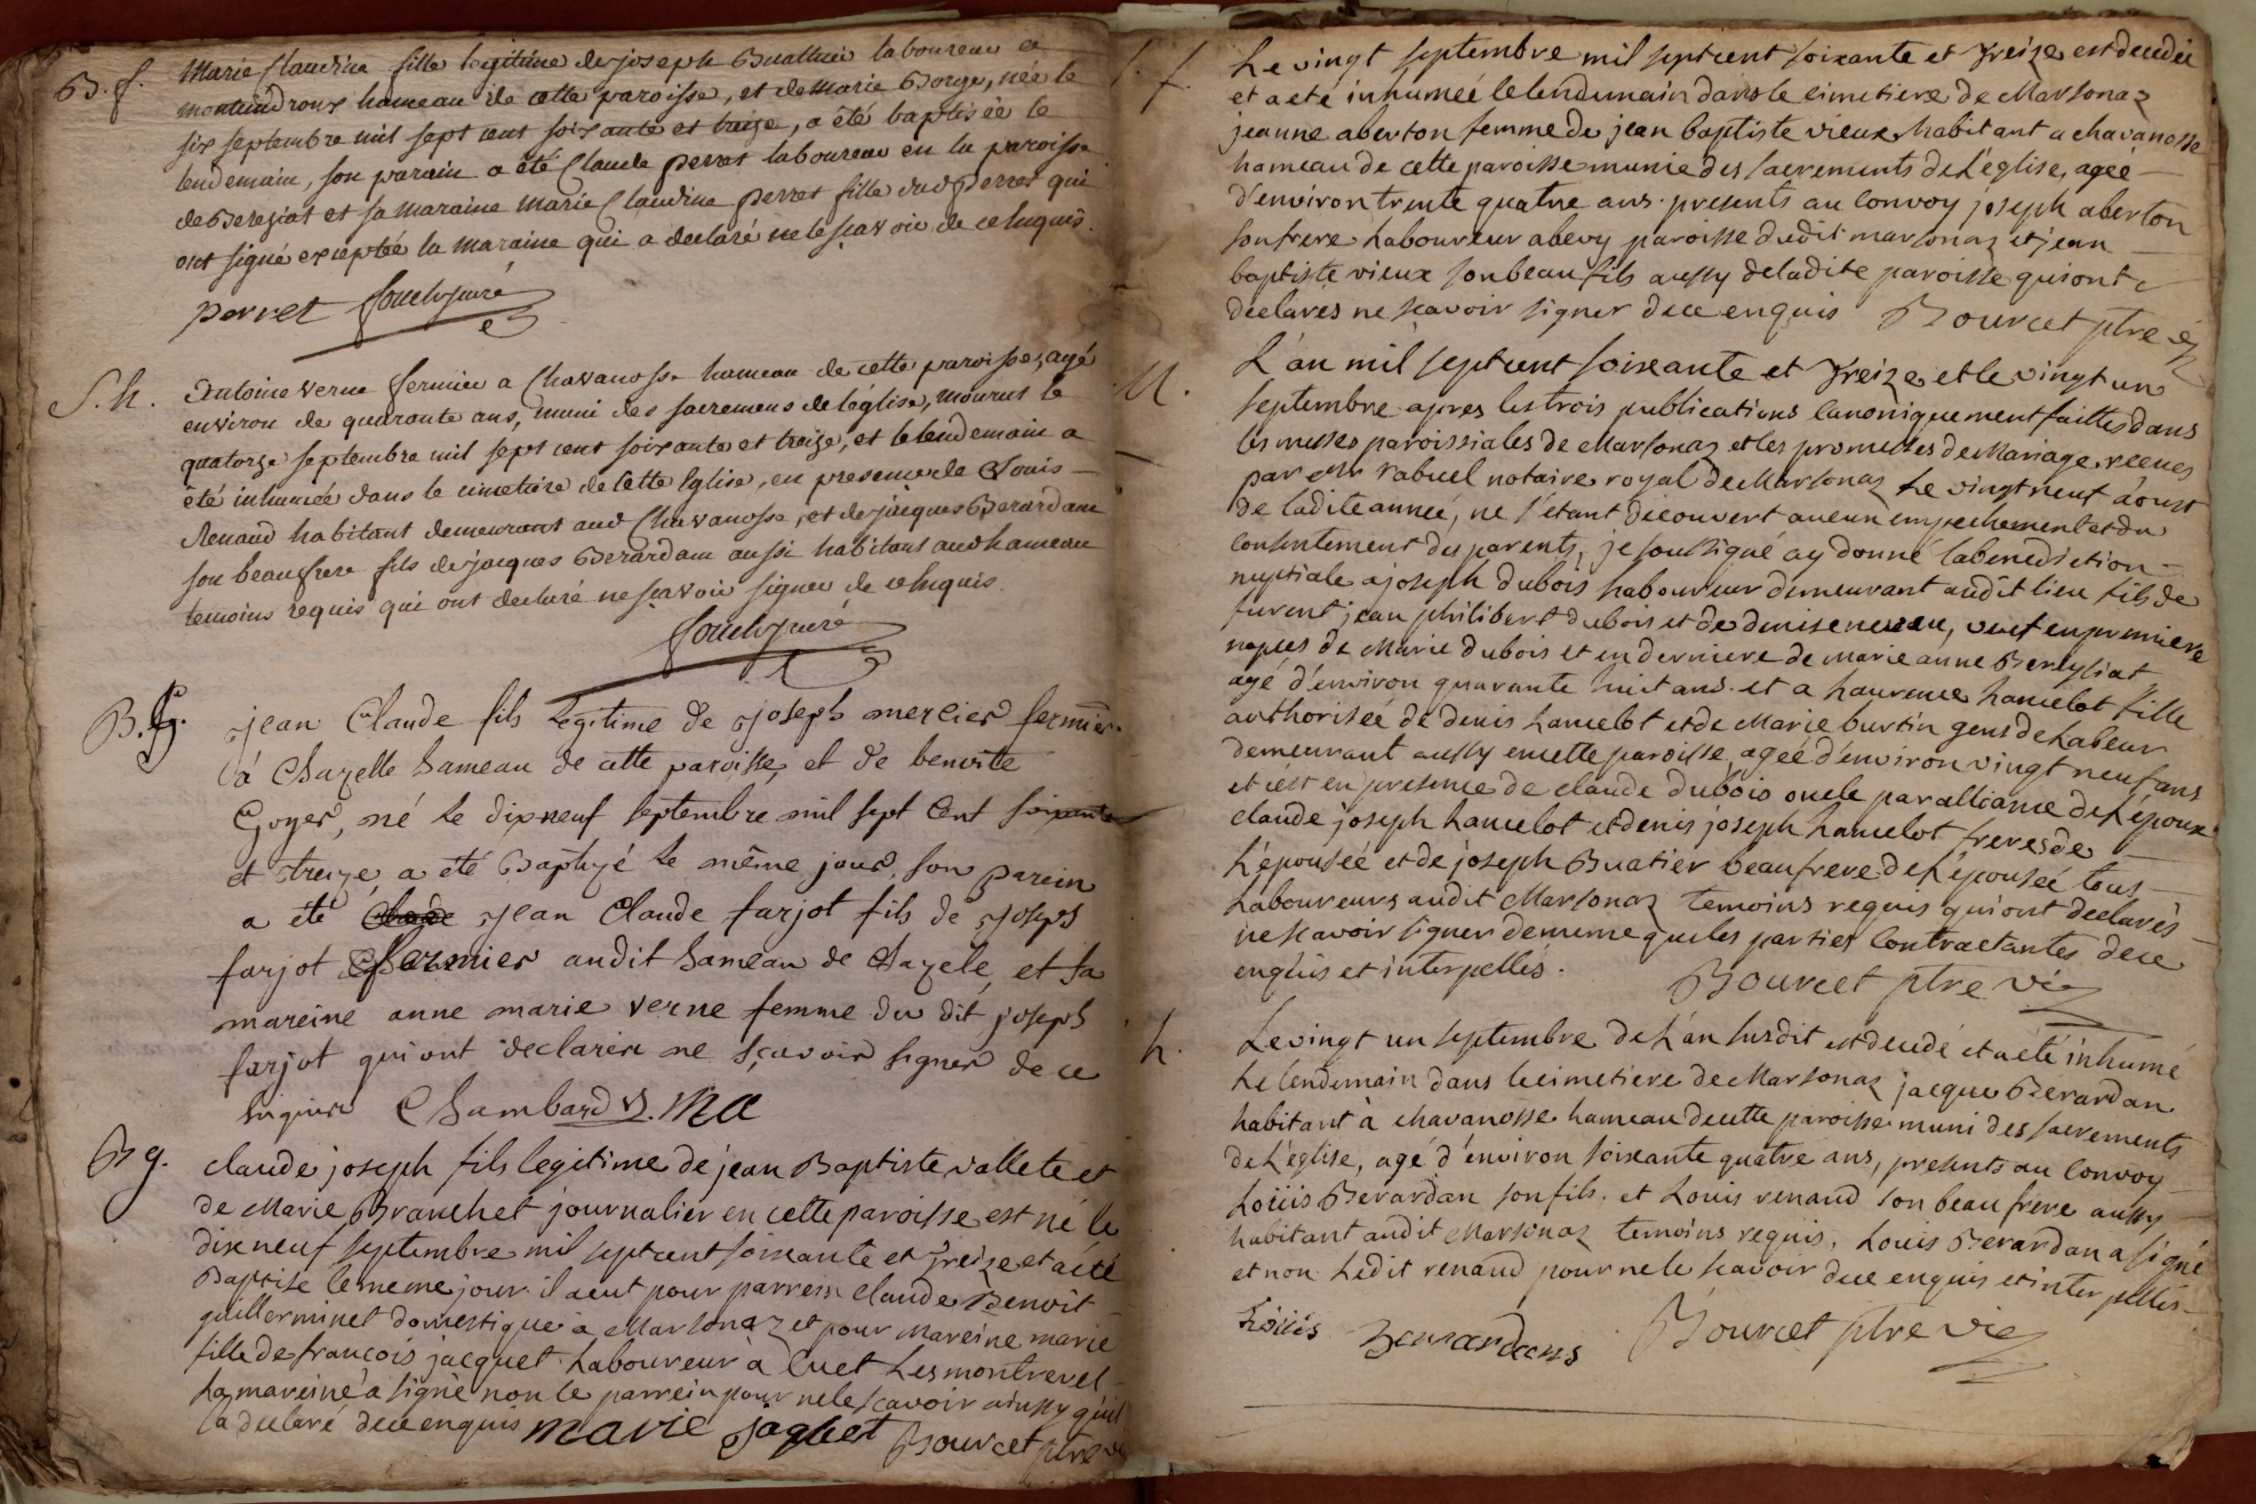 B. f. Marie Claudine fille legitime de joseph Buathier laboureur a
montaindroux hameau de cette paroisse, et de Marie Borge, née le
six septembre mil sept cent soixante et treize, a été baptisée le
lendemain, son parain a été Claude perret laboureur en la paroisse
de Bereziat et sa maraine Marie Claudine perret fille dud perret qui
ont signé exceptée la maraine qui a declaré ne le sçavoir de ce Enquis.
perret
S. h. Antoine Verne fermier a Chavanosse hameau de cette paroisse, agé
environ de quaronte ans, muni des sacremens de l'église, mourut le
quatorze septembre mil sept cent soixante et treize, et le lendemain a
été inhumée dans le cimetière de cette Eglise, en presence de Louis
Renaud habitant demeurant aud Chavanosse, et de jacques Berardam
son beaufrere fils de jacques Berardam aussi habitant aud hameau
temoins requis qui ont declaré ne sçavoir signer de ce Enquis.
B. g. jean Claude fils Legitime de joseph mercier fermier
à Chazelle hameau de cette paroisse, et de benoîte
Goyer, né le dixneuf septembre mil sept Cent soixante
et treize, a eté Baptizé le même jour, son parein
a été jean Claude farjot fils de joseph
farjot fermier audit hameau de Chazele, et sa
mareine anne marie verne femme du dit joseph
farjot qui ont declarer ne sçavoir signer de ce
Enquis Chambard v. Ma
B g. claude joseph fils legitime de jean Baptiste vallete et
de Marie Branchet journalier en cette paroisse est né le
dixneuf septembre mil septcent soixante et treize et a été
Baptise le meme jour il a eut pour parrein claude Benoit
guillerminet domestique a Marsonaz et pour mareine marie
fille de françois jacquet Laboureur à Cuet Les montrevel
La mareine a signé non le parrein pour ne le scavoir ainssy qu'il
l'a declaré de ce enquis marie jaquet Bourcet ptre
S. f. Le vingt septembre mil septcent soixante et treize est decedée
et a eté inhumeé le lendemain dans le cimetiere de Marsonaz
jeanne aberton femme de jean baptiste vieux habitant a chavanosse
hameau de cette paroisse munie des sacrements de L'église, ageé
d'environ trente quatre ans. presents au Convoy joseph aberton
son frere Laboureur a bevy paroisse dudit marsonaz et jean
baptiste vieux son beau fils aussy de ladite paroisse qui ont
declares ne scavoir signer de ce enquis Bourcet ptre
M. L'an mil septcent soixante et treize et le vingt un
septembre apres les trois publications Canoniquement faittes dans
les messes paroissiales de Marsonaz et les promesses de Mariage receues
par Mr rabuel notaire royal de Marsonaz Le vingt neuf aoust
de ladite anneé, ne s'étant découvert aucun empechement et du
Consentement des parents, je soussigné ay donné la benediction
nuptiale a joseph dubois Laboureur demeurant audit lieu fils de
furent jean philibert dubois et de denise neveu, veuf en premiere
nopces de Marie dubois et en derniere de marie anne Bereyliat
agé d'environ quarante huit ans. et a Laurence Lancelot fille
authoriseé de denis Lancelot et de Marie burtin gens de Labeur
demeurant aussy en cette paroisse, ageé d'environ vingt neuf ans
et c'est en presence de claude dubois oncle par alliance de L'époux
claude joseph Lancelot et denis joseph Lancelot freres de
L'épouseé et de joseph Buatier beaufrere de L'épouseé tous
Laboureurs audit Marsonaz temoins requis qui ont declarés
ne scavoir signer de meme que les parties Contractantes de ce
enquis et interpellés. Bourcet ptre vic
h. Le vingt un septembre de L'an susdit est decedé et a été inhumé
Le lendemain dans le cimetiere de Marsonaz jacque Berardan
habitant à chavanosse hameau de cette paroisse muni des sacrements
de L'église, agé d'environ soixante quatre ans, presents au Convoy
Loüis Berardan son fils. et Louis renaud son beau frere aussy
habitant audit Marsonaz temoins requis, Louis Berardan a signé
et non Ledit renaud pour ne le scavoir de ce enquis et interpellés
Loüis Berrardans Bourcet ptre vic